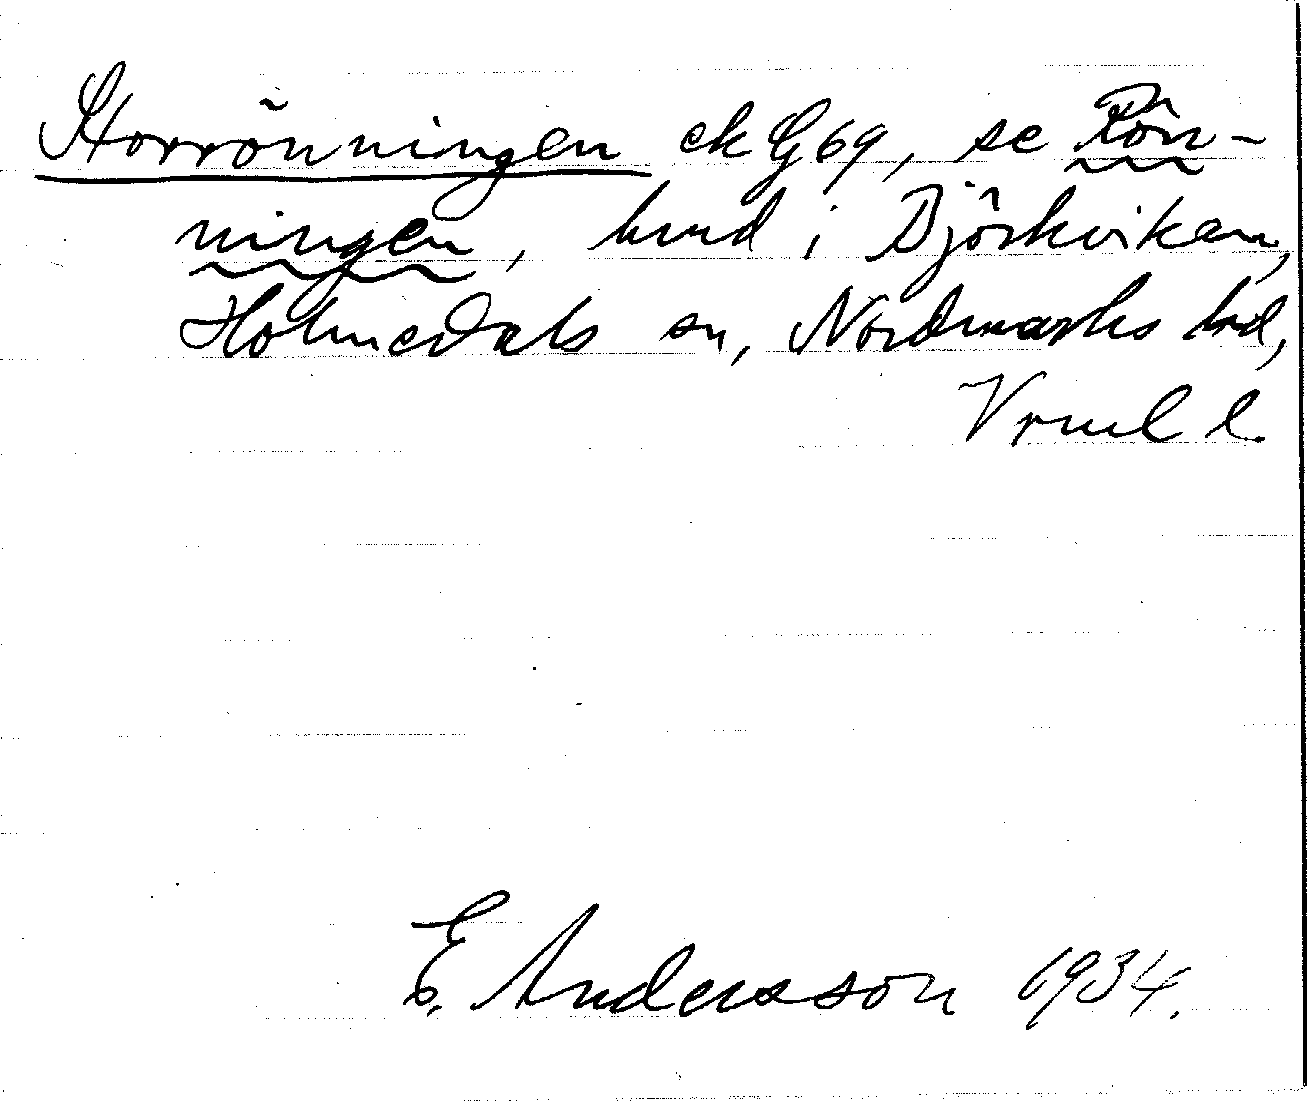 Storrönningen ek G69, se Rön-
ningen, hmd i Björkviken,
Holmedals sn, Nordmarks hd,
Vrml l
E. Andersson 1934.